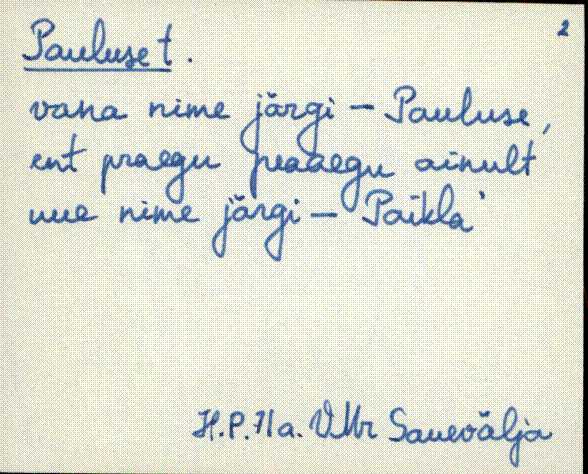 2
Pauluse t.
vana nime järgi – Pauluse,
ent praegu peaaegu ainult
uue nime järgi – Paikla'
H.P. 71a. VMr Sauevälja